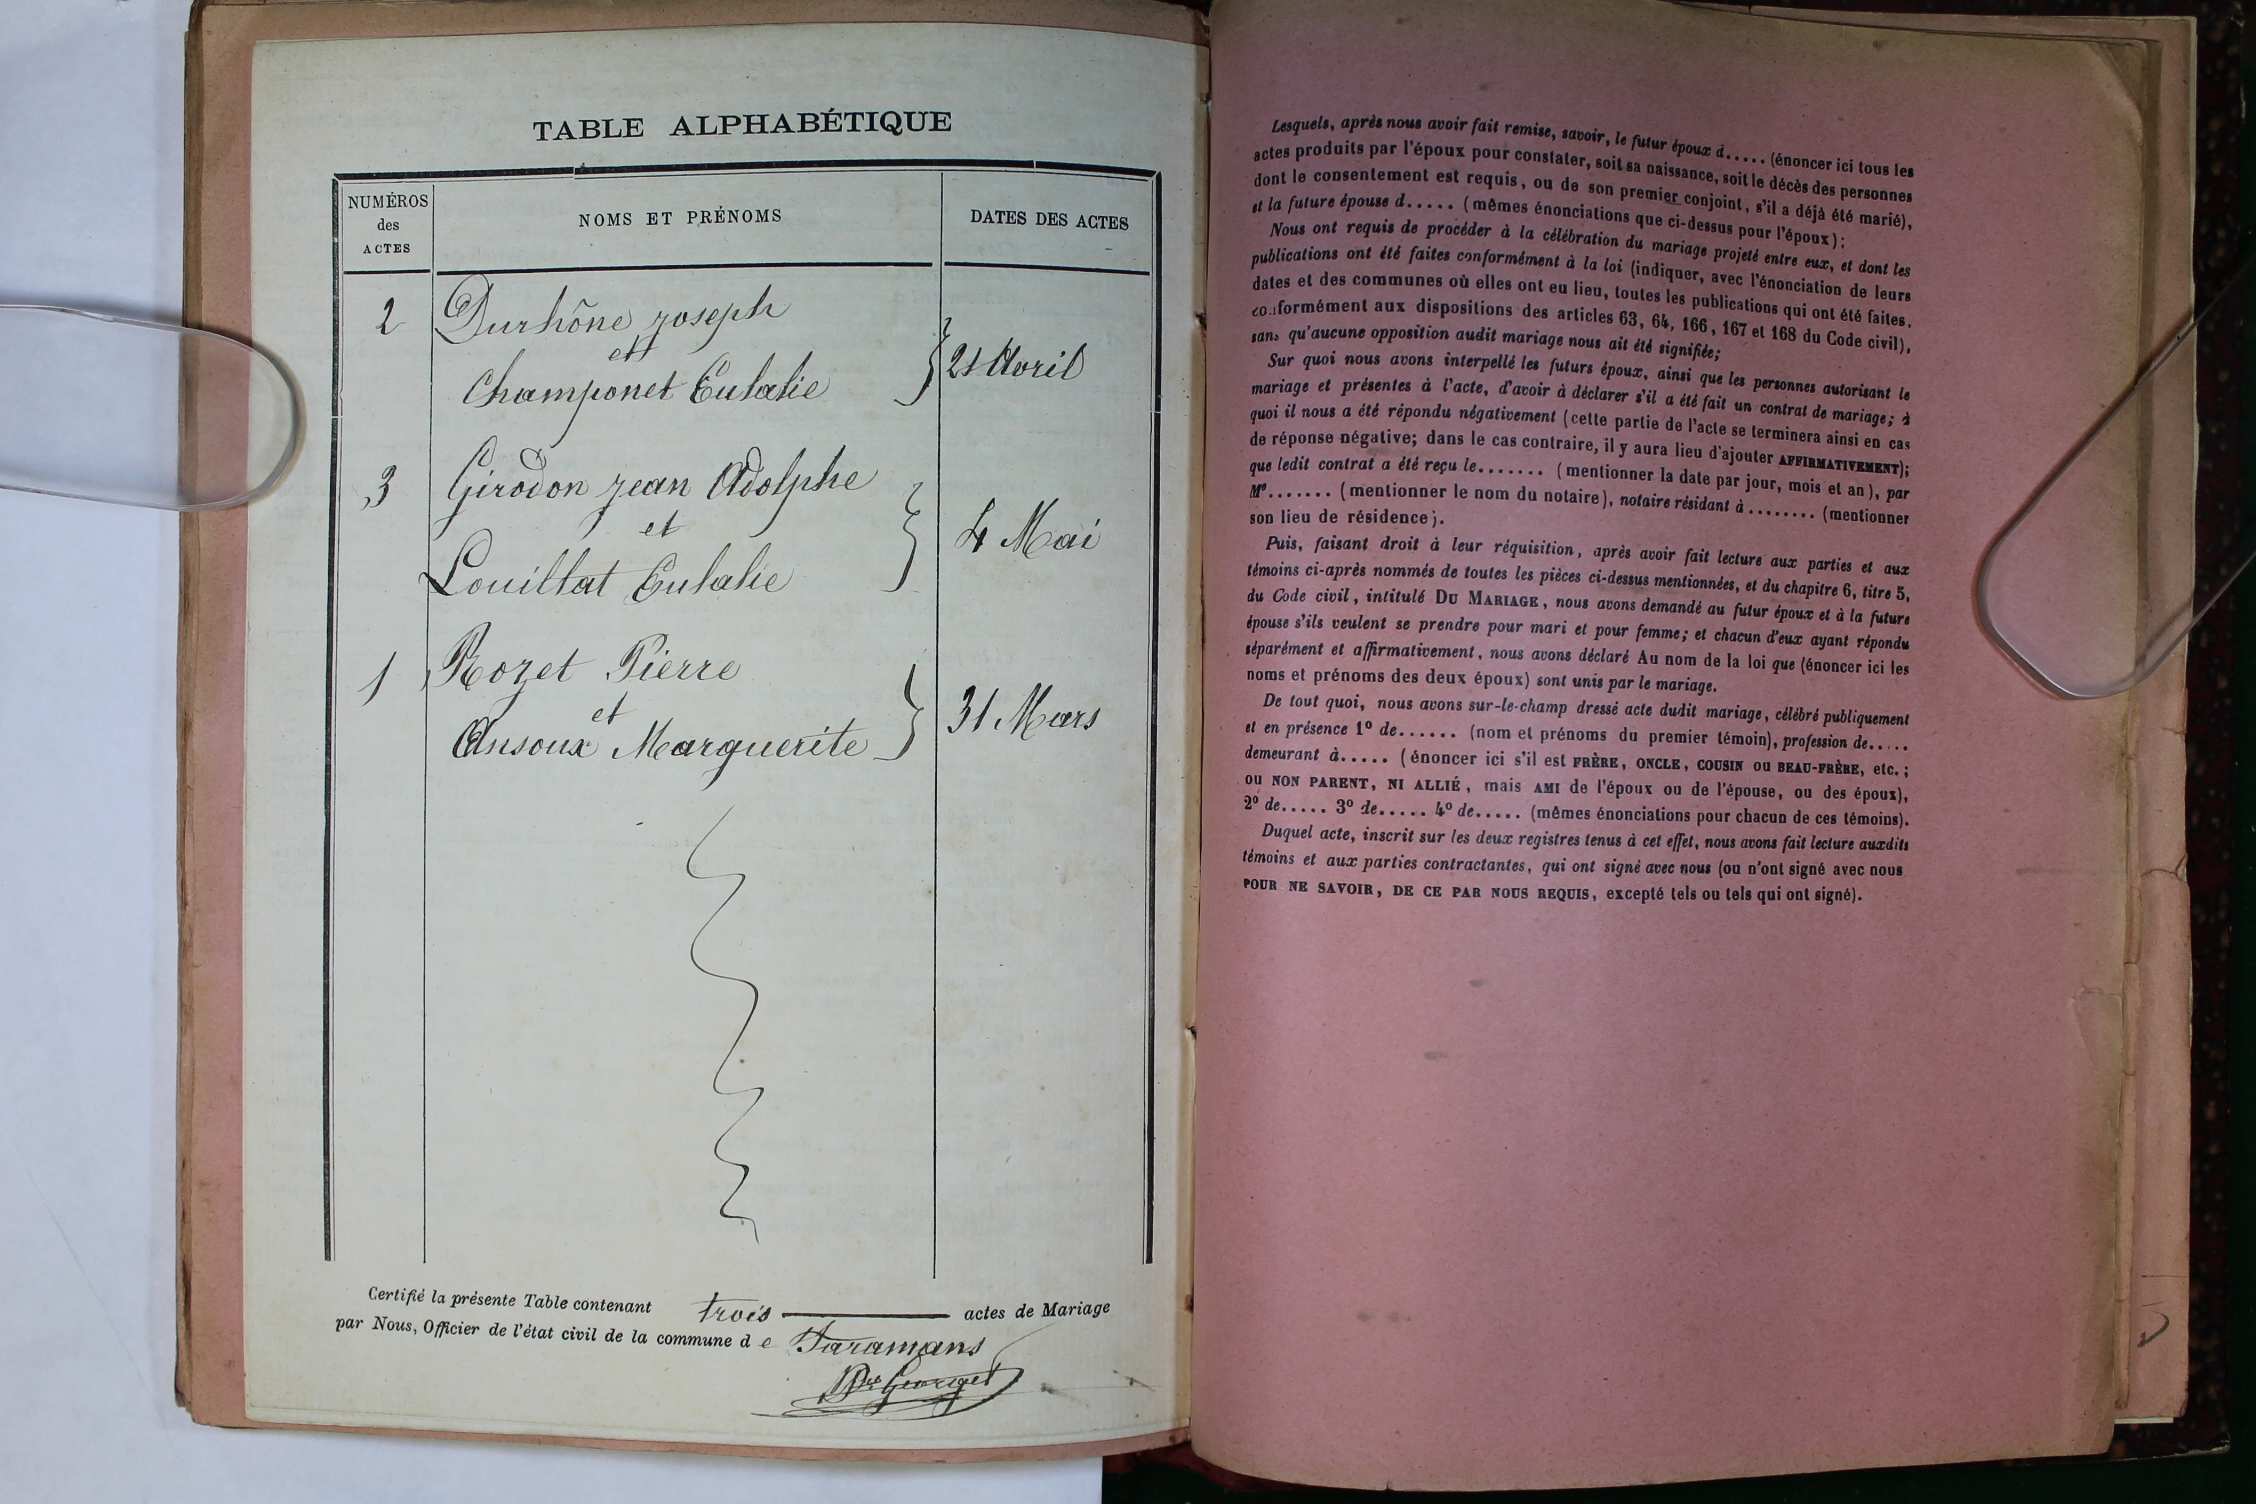 TABLE ALPHABÉTIQUE
NUMÉROS
des
ACTES
NOMS ET PRÉNOMS
DATES DES ACTES
2
Durhône Joseph
et
Champonet Eulalie
21 Avril
3
Girodon Jean Adolphe
et
Louillat Eulalie
4 Mai
1
Rozet Pierre
et
Ansoux Marguerite
31 Mars
Certifié la présente Table contenant trois actes de Mariage
par Nous, Officier de l'état civil de la commune de Faramans
Georget
Lesquels, après nous avoir fait remise, savoir, le futur époux d..... (énoncer ici tous les
actes produits par l'époux pour constater, soit sa naissance, soit le décès des personnes
dont le consentement est requis, ou de son premier conjoint, s'il a déjà été marié),
et la future épouse d..... (mêmes énonciations que ci-dessus pour l'époux);
Nous ont requis de procéder à la célébration du mariage projeté entre eux, et dont les
publications ont été faites conformément à la loi (indiquer, avec l'énonciation de leurs
dates et des communes où elles ont eu lieu, toutes les publications qui ont été faites,
conformément aux dispositions des articles 63, 64, 166, 167 et 168 du Code civil),
sans qu'aucune opposition audit mariage nous ait été signifiée;
Sur quoi nous avons interpellé les futurs époux, ainsi que les personnes autorisant le
mariage et présentes à l'acte, d'avoir à déclarer s'il a été fait un contrat de mariage; à
quoi il nous a été répondu négativement (cette partie de l'acte se terminera ainsi en cas
de réponse négative; dans le cas contraire, il y aura lieu d'ajouter AFFIRMATIVEMENT);
que ledit contrat a été reçu le....... (mentionner la date par jour, mois et an), par
Me....... (mentionner le nom du notaire), notaire résidant à ........ (mentionner
son lieu de résidence).
Puis, faisant droit à leur réquisition, après avoir fait lecture aux parties et aux
témoins ci-après nommés de toutes les pièces ci-dessus mentionnées, et du chapitre 6, titre 5,
du Code civil, intitulé DU MARIAGE, nous avons demandé au futur époux et à la future
épouse s'ils veulent se prendre pour mari et pour femme; et chacun d'eux ayant répondu
séparément et affirmativement, nous avons déclaré Au nom de la loi que (énoncer ici les
noms et prénoms des deux époux) sont unis par le mariage.
De tout quoi, nous avons sur-le-champ dressé acte dudit mariage, célébré publiquement
et en présence 1º de...... (nom et prénoms du premier témoin), profession de.....
demeurant à..... (énoncer ici s'il est FRÈRE, ONCLE, COUSIN OU BEAU-FRÈRE, etc.;
ou NON PARENT, NI ALLIÉ, mais AMI de l'époux ou de l'épouse, ou des époux),
2º de..... 3º de..... 4º de..... (mêmes énonciations pour chacun de ces témoins).
Duquel acte, inscrit sur les deux registres tenus à cet effet, nous avons fait lecture auxdits
témoins et aux parties contractantes, qui ont signé avec nous (ou n'ont signé avec nous
POUR NE SAVOIR, DE CE PAR NOUS REQUIS, excepté tels ou tels qui ont signé).